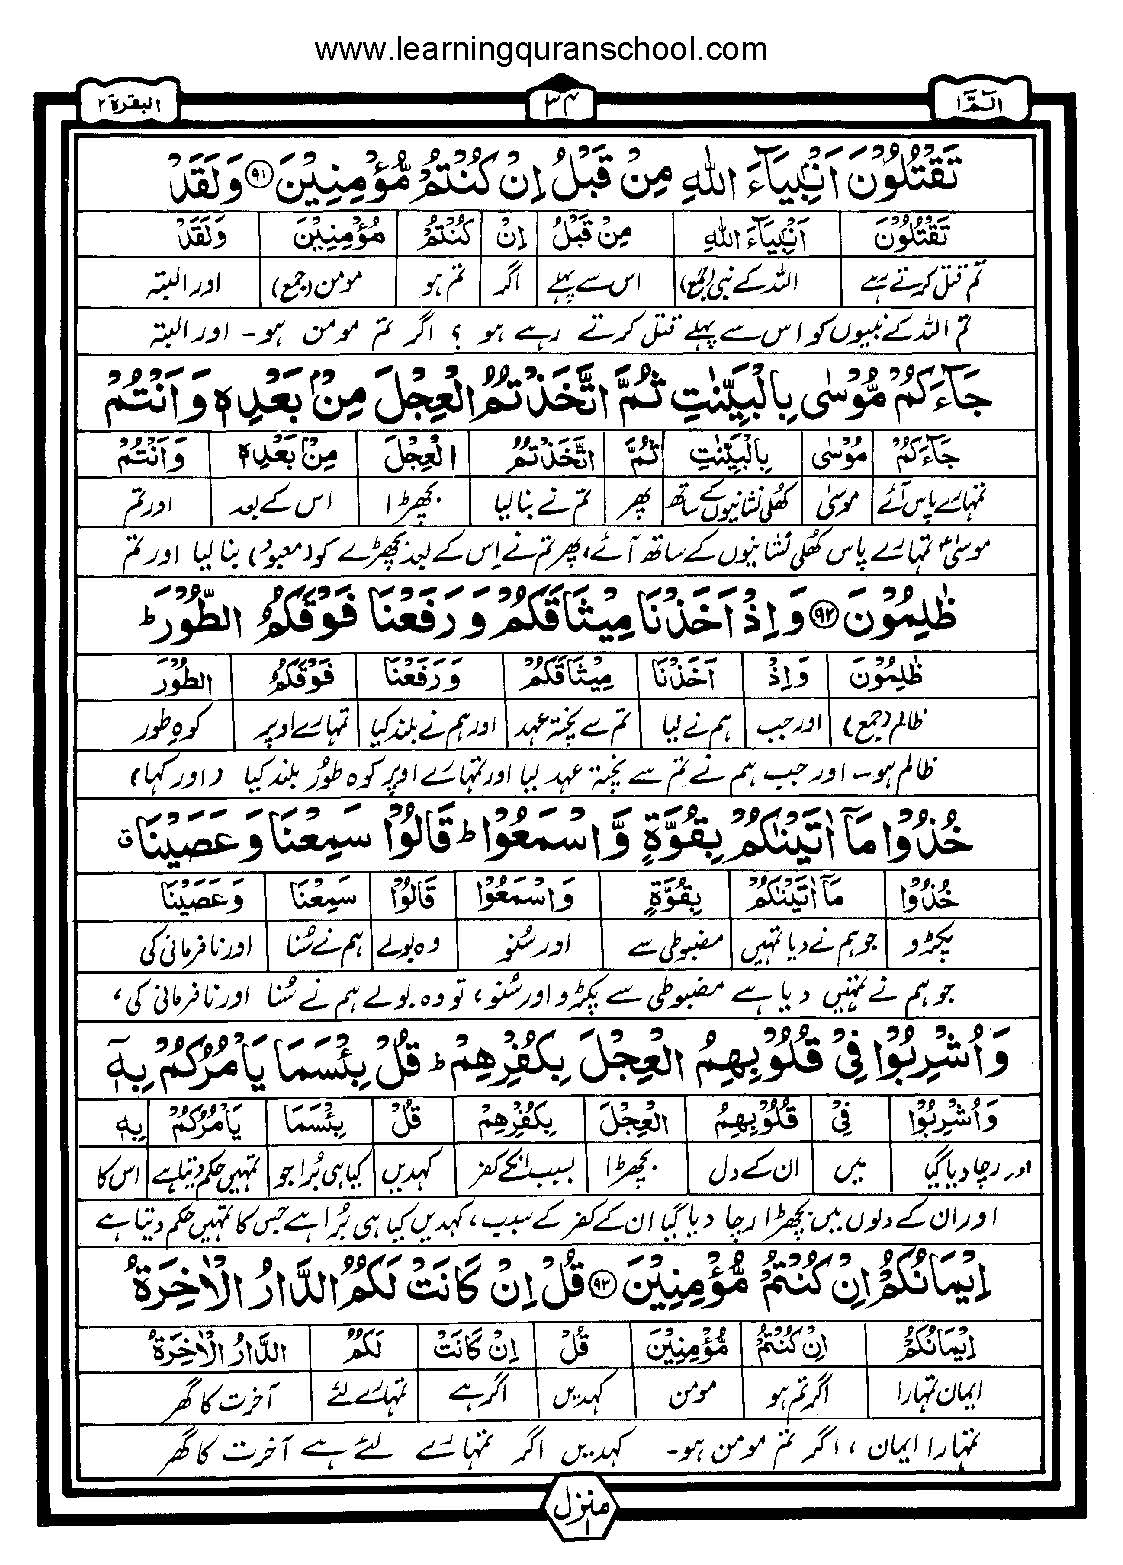 www.learningquranschool.com
الٓمّٓ ۱
۳۴
البقرة ۲
تَقْتُلُوْنَ اَنْۢبِيَآءَ اللّٰهِ مِنْ قَبْلُ اِنْ كُنْتُمْ مُّؤْمِنِيْنَ ۹۱ وَلَقَدْ
تَقْتُلُوْنَ اَنْۢبِيَآءَ اللّٰهِ مِنْ قَبْلُ اِنْ كُنْتُمْ مُؤْمِنِيْنَ وَلَقَدْ
تم قتل کرتے ہے اللہ کے نبی (جمع) اس سے پہلے اگر تم ہو مومن (جمع) اور البتہ
تم اللہ کے نبیوں کو اس سے پہلے قتل کرتے رہے ہو ؟ اگر تم مومن ہو- اور البتہ
جَآءَكُمْ مُّوْسٰى بِالْبَيِّنٰتِ ثُمَّ اتَّخَذْتُمُ الْعِجْلَ مِنْۢ بَعْدِهٖ وَاَنْتُمْ
جَآءَكُمْ مُوْسٰى بِالْبَيِّنٰتِ ثُمَّ اتَّخَذْتُمُ الْعِجْلَ مِنْۢ بَعْدِهٖ وَاَنْتُمْ
تمہارے پاس آئے موسیٰ کھلی نشانیوں کے ساتھ پھر تم نے بنا لیا بچھڑا اس کے بعد اور تم
موسیٰؑ تمہارے پاس کھلی نشانیوں کے ساتھ آئے، پھر تم نے اس کے بعد بچھڑے کو (معبود) بنا لیا اور تم
ظٰلِمُوْنَ ۹۲ وَاِذْ اَخَذْنَا مِيْثَاقَكُمْ وَرَفَعْنَا فَوْقَكُمُ الطُّوْرَ ؕ
ظٰلِمُوْنَ وَاِذْ اَخَذْنَا مِيْثَاقَكُمْ وَرَفَعْنَا فَوْقَكُمُ الطُّوْرَ
ظالم (جمع) اور جب ہم نے لیا تم سے پختہ عہد اور ہم نے بلند کیا تمہارے اوپر کوہ طور
ظالم ہو۔ اور جب ہم نے تم سے پختہ عہد لیا اور تمہارے اوپر کوہ طور بلند کیا (اور کہا)
خُذُوْا مَآ اٰتَيْنٰكُمْ بِقُوَّةٍ وَّاسْمَعُوْا ؕ قَالُوْا سَمِعْنَا وَعَصَيْنَا ۗ
خُذُوْا مَآ اٰتَيْنٰكُمْ بِقُوَّةٍ وَاسْمَعُوْا قَالُوْا سَمِعْنَا وَعَصَيْنَا
پکڑو جو ہم نے دیا تمہیں مضبوطی سے اور سُنو وہ بولے ہم نے سُنا اور نافرمانی کی
جو ہم نے تمہیں دیا ہے مضبوطی سے پکڑو اور سُنو، تو وہ بولے ہم نے سُنا اور نافرمانی کی،
وَاُشْرِبُوْا فِيْ قُلُوْبِهِمُ الْعِجْلَ بِكُفْرِهِمْ ؕ قُلْ بِئْسَمَا يَاْمُرُكُمْ بِهٖٓ
وَاُشْرِبُوْا فِيْ قُلُوْبِهِمُ الْعِجْلَ بِكُفْرِهِمْ قُلْ بِئْسَمَا يَاْمُرُكُمْ بِهٖٓ
اور رچا دیا گیا میں ان کے دل بچھڑا بسبب انکے کفر کہدیں کیا ہی بُرا جو تمہیں حکم دیتا ہے اس کا
اور ان کے دلوں میں بچھڑا رچا دیا گیا ان کے کفر کے سبب، کہدیں کیا ہی بُرا ہے جس کا تمہیں حکم دیتا ہے
اِيْمَانُكُمْ اِنْ كُنْتُمْ مُّؤْمِنِيْنَ ۹۳ قُلْ اِنْ كَانَتْ لَكُمُ الدَّارُ الْاٰخِرَةُ
اِيْمَانُكُمْ اِنْ كُنْتُمْ مُّؤْمِنِيْنَ قُلْ اِنْ كَانَتْ لَكُمُ الدَّارُ الْاٰخِرَةُ
ایمان تمہارا اگر تم ہو مومن کہدیں اگر ہے تمہارے لئے آخرت کا گھر
تمہارا ایمان، اگر تم مومن ہو۔ کہدیں اگر تمہارے لئے ہے آخرت کا گھر
منزل ۱